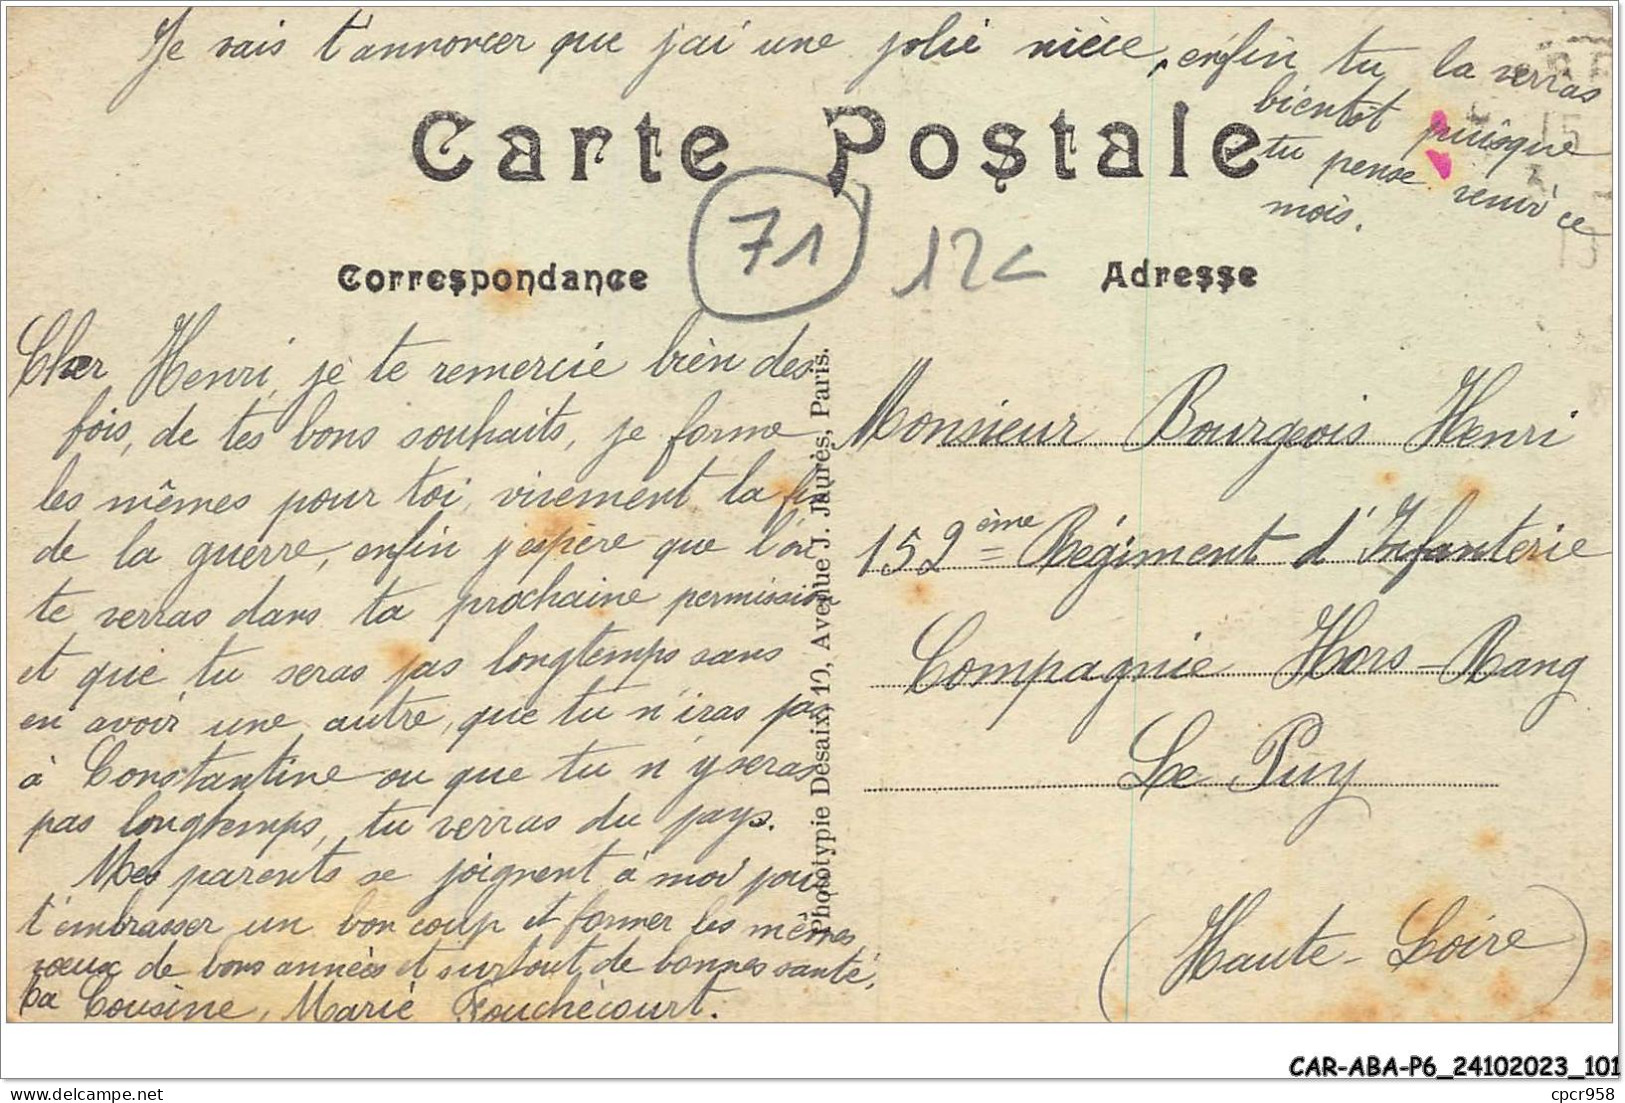 Je vais t'annoncer que j'ai une jolie nièce, enfin tu la verras
bientôt puisque
tu pense venir ce
mois.
Carte Postale
71
12
Correspondance
Adresse
Cher Henri, je te remercie bien des
fois, de tes bons souhaits, je forme
les mêmes pour toi, vivement la fin
de la guerre, enfin j'espère que l'on
te verras dans ta prochaine permission
et que tu seras pas longtemps sans
en avoir une autre, que tu n'iras pas
à Constantine ou que tu n'y seras
pas longtemps, tu verras du pays.
Mes parents se joignent à moi pour
t'embrasser un bon coup et former les mêmes
vœux de bons années et surtout de bonnes santé.
Ta Cousine, Marie Fouchécourt.
Phototypie Desaix, 10, Avenue J. Jaurès, Paris.
Monsieur Bourgeois Henri
152ème Régiment d'Infanterie
Compagnie Hors-Rang
Le Puy
(Haute-Loire)
CAR-ABA-P6_24102023_101
cpcr958